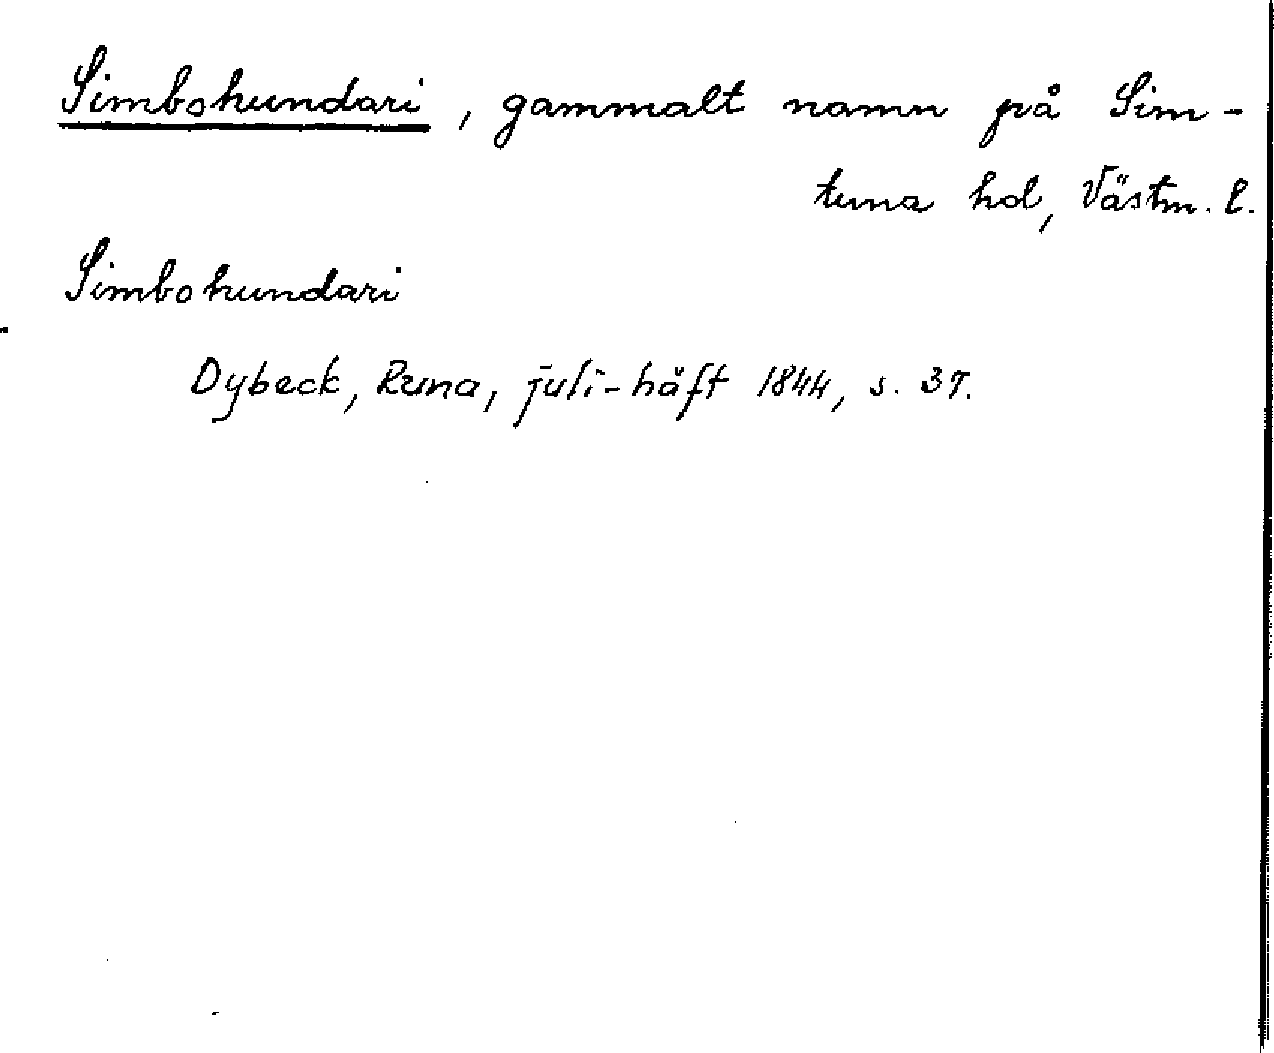 Simbohundari, gammalt namn på Sim-
tuna hd, Västm. l.
Simbohundari
Dybeck, Runa, juli-häft 1844, s. 37.